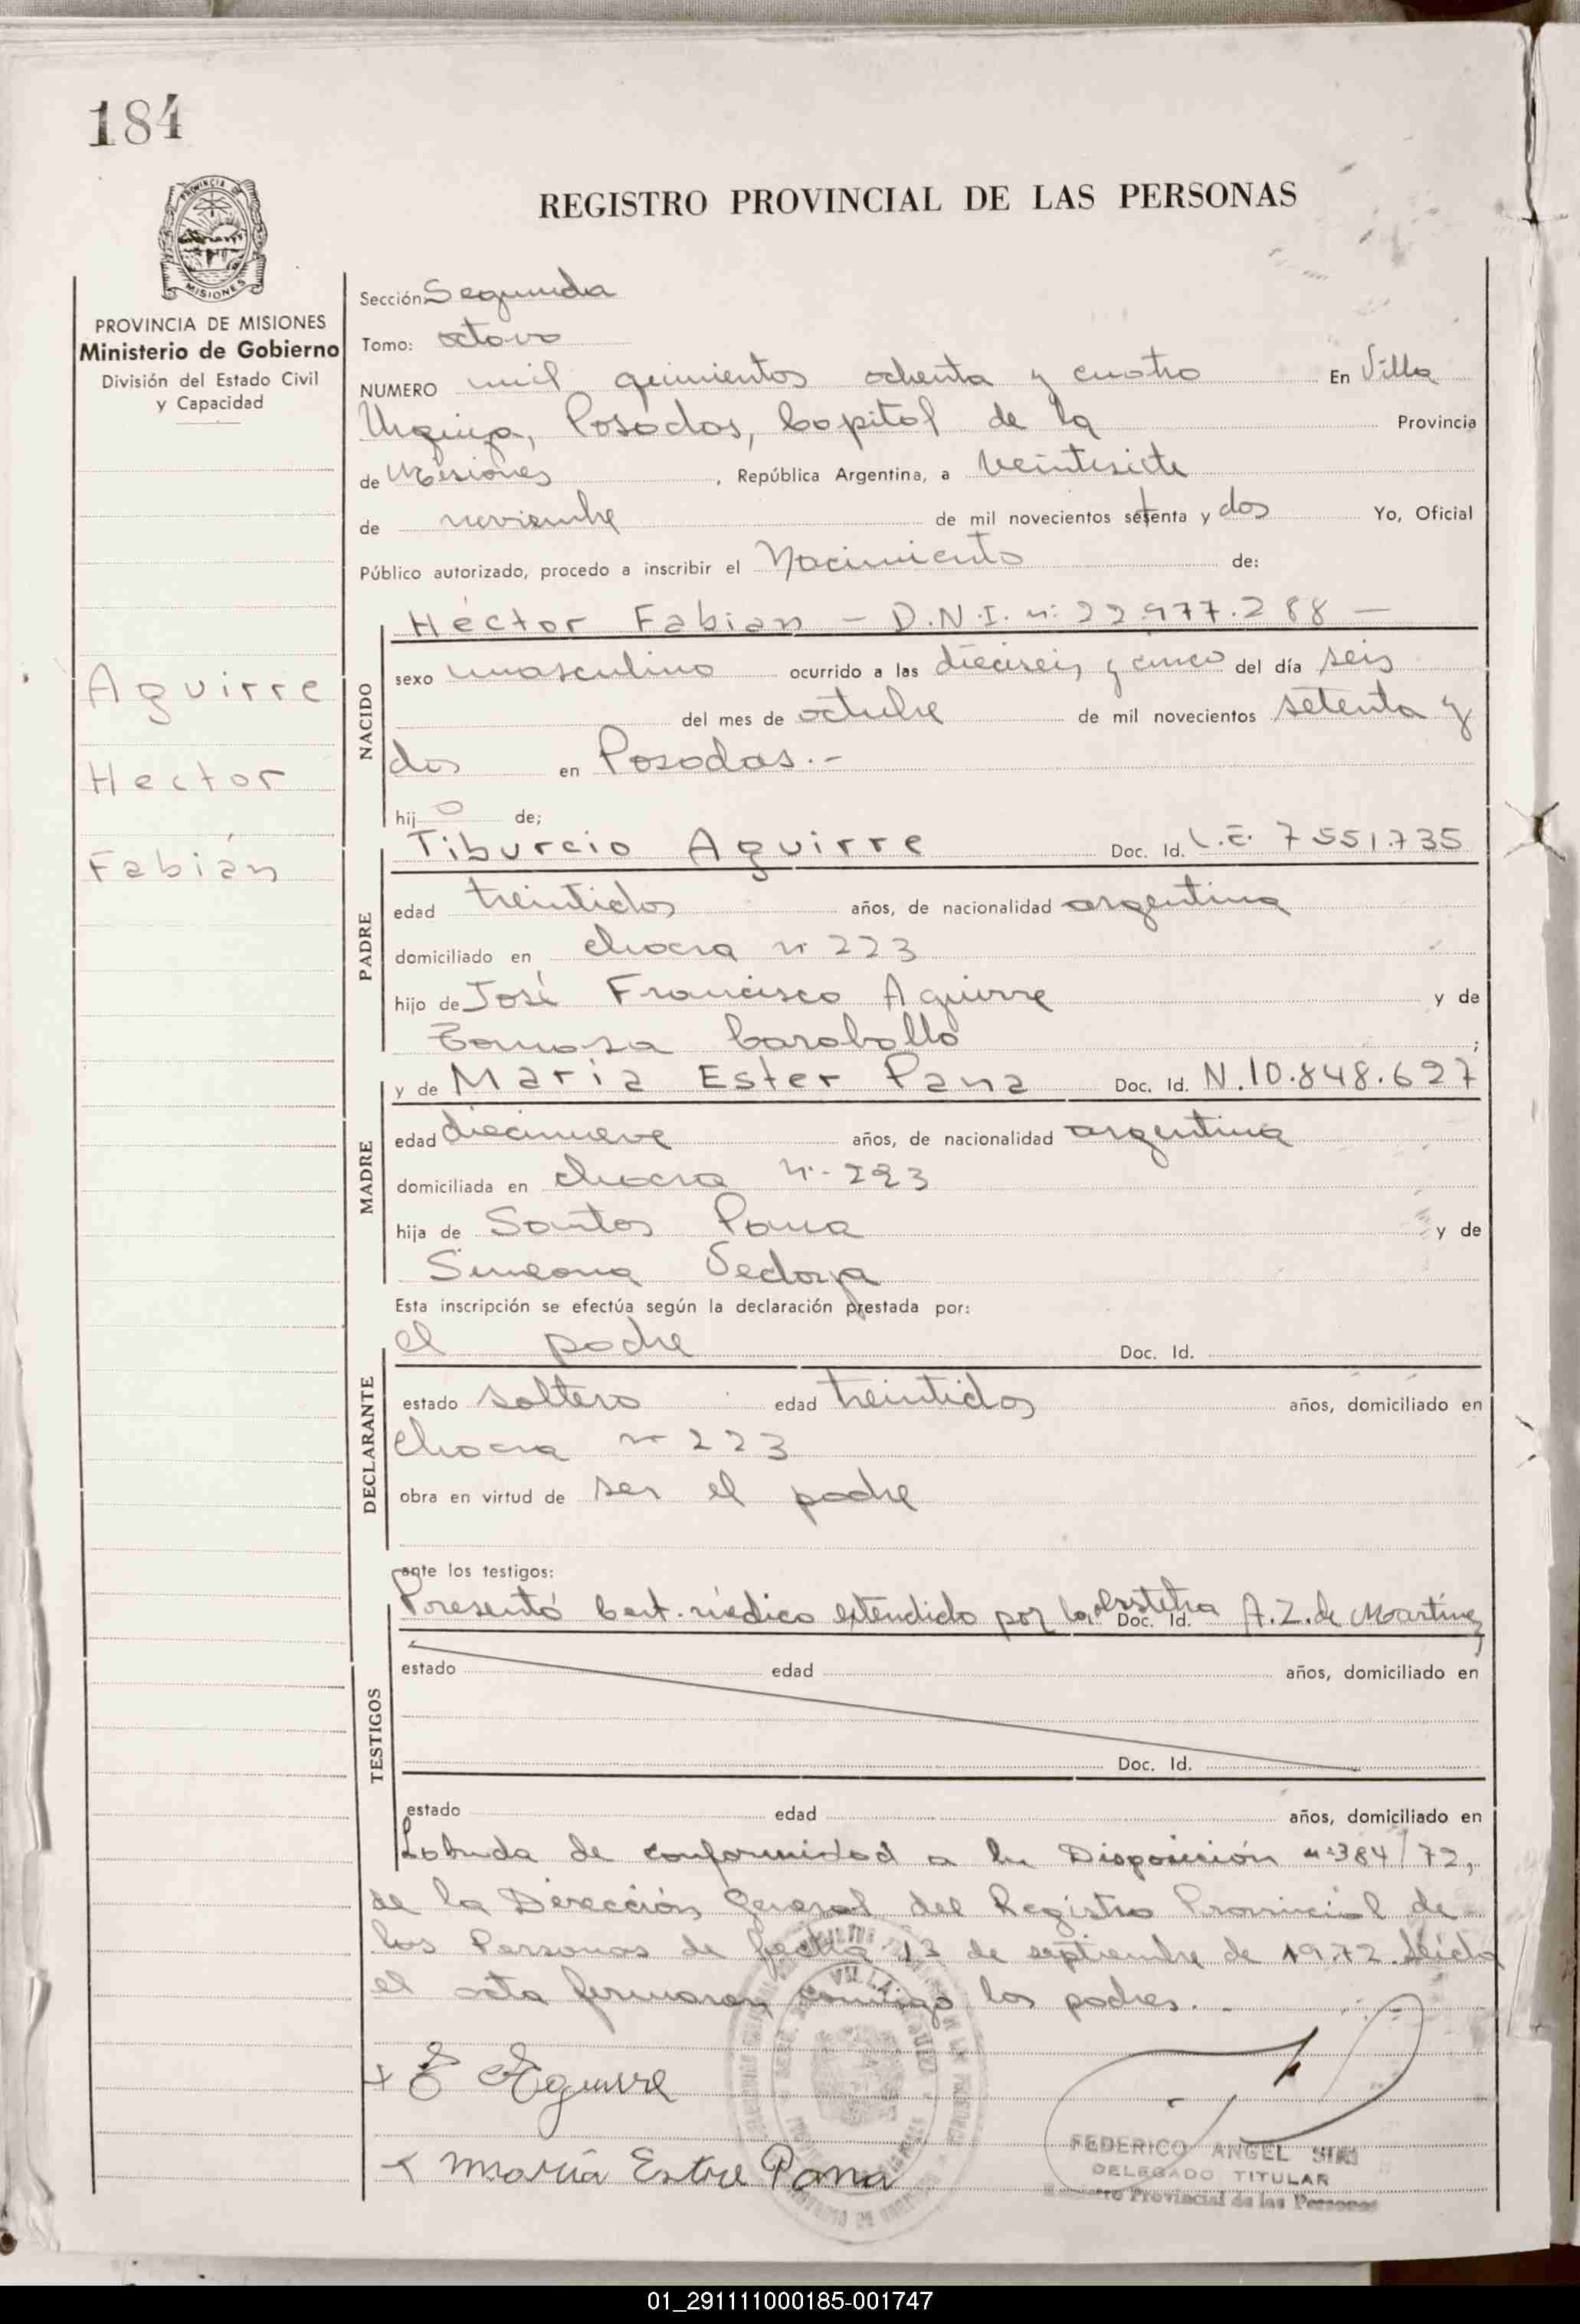 184
REGISTRO PROVINCIAL DE LAS PERSONAS
PROVINCIA DE MISIONES
MISIONES
PROVINCIA DE MISIONES
Ministerio de Gobierno
División del Estado Civil
y Capacidad
Aguirre
Hector
Fabián
Sección: Segunda
Tomo: octavo
NUMERO mil quinientos ochenta y cuatro En Villa
Urquiza, Posadas, Capital de la Provincia
de Misiones, República Argentina, a veintisiete
de noviembre de mil novecientos setenta y dos Yo, Oficial
Público autorizado, procedo a inscribir el Nacimiento de:
NACIDO
Héctor Fabian - D.N.I. nº: 22.977.288 -
sexo masculino ocurrido a las dieciseis y cinco del día seis
del mes de octubre de mil novecientos setenta y
dos en Posadas.-
hijo de;
PADRE
Tiburcio Aguirre Doc. Id. L.E. 7551.735
edad treintidos años, de nacionalidad argentina
domiciliado en chacra nº 223
hijo de José Francisco Aguirre y de
Caraballo;
MADRE
y de Maria Ester Pana Doc. Id. N. 10.848.627
edad diecinueve años, de nacionalidad argentina
domiciliada en chacra nº- 223
hija de Santos Pana y de
Simeona
Esta inscripción se efectúa según la declaración prestada por:
DECLARANTE
el padre Doc. Id.
estado soltero edad treintidos años, domiciliado en
chacra nº 223
obra en virtud de ser el padre
ante los testigos:
TESTIGOS
Presentó Cert. médico extendido por la obstetra Doc. Id. A. Z. de Martinez
estado edad años, domiciliado en
Doc. Id.
estado edad años, domiciliado en
Labrada de conformidad a la Disposición nº 384/72,
de la Dirección General del Registro Provincial de
las Personas de fecha 13 de septiembre de 1972. Leida
el acta firmaron conmigo los padres.-
Aguirre
Maria Estre Pana
FEDERICO ANGEL
DELEGADO TITULAR
Registro Provincial de las Personas
01_291111000185-001747